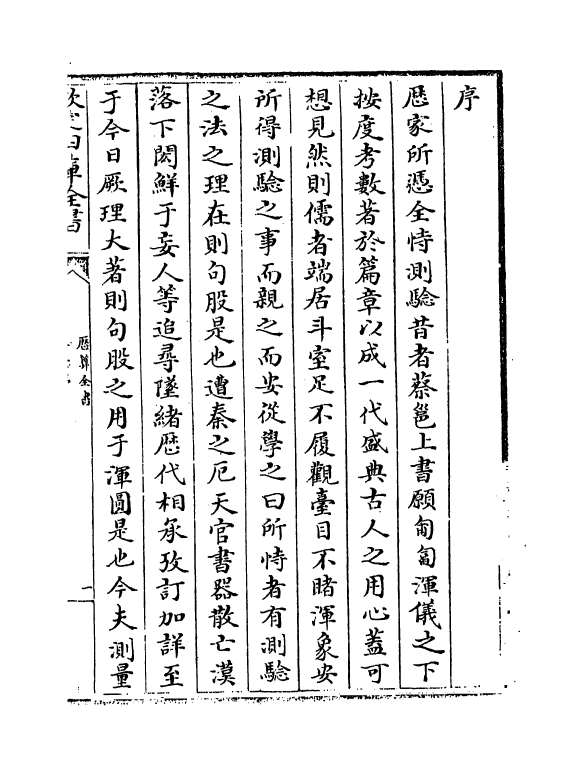 序
厯家所憑全恃測驗昔者蔡邕上書願匍匐渾儀之下
按度考數著於篇章以成一代盛典古人之用心蓋可
想見然則儒者端居斗室足不履觀臺目不睹渾象安
所得測驗之事而親之而安從學之曰所恃者有測驗
之法之理在則句股是也遭秦之厄天官書器散亡漢
落下閎鮮于妄人等追尋墜緒厯代相承攷訂加詳至
于今日厥理大著則句股之用于渾圓是也今夫測量
欽定四庫全書
厯算全書
一